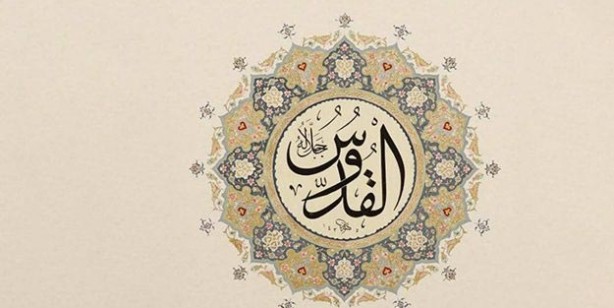 القُدُّوسُ
جل جلاله